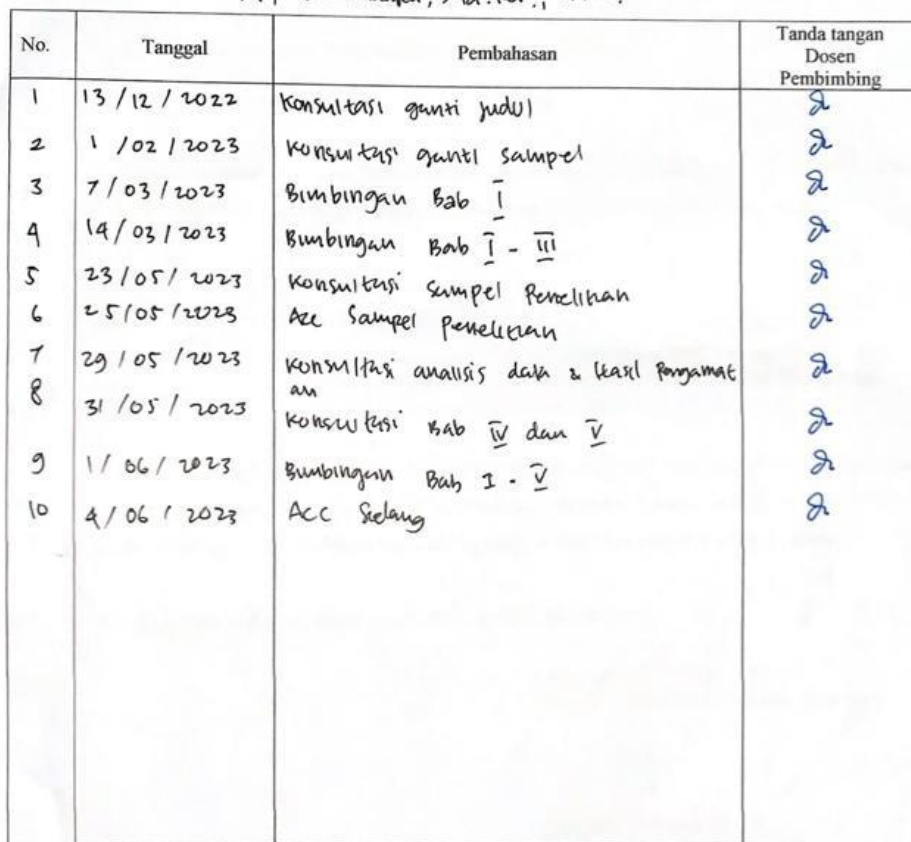 No. Tanggal Pembahasan Tanda tangan
Dosen
Pembimbing
1 13/12/2022 Konsultasi ganti judul
2 1/02/2023 Konsultasi ganti sampel
3 7/03/2023 Bimbingan Bab I
4 14/03/2023 Bimbingan Bab I - III
5 23/05/2023 Konsultasi sampel Penelitian
6 25/05/2023 Acc Sampel penelitian
7 29/05/2023 Konsultasi analisis data & Hasil Pengamat
an
8 31/05/2023 Konsultasi Bab IV dan V
9 1/06/2023 Bimbingan Bab I - V
10 4/06/2023 Acc Sidang